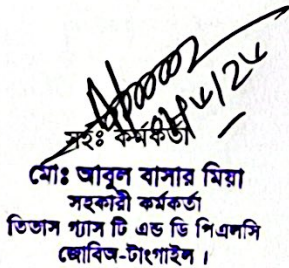 সহঃ কর্মকর্তা
মোঃ আবুল বাসার মিয়া
সহকারী কর্মকর্তা
তিতাস গ্যাস টি এন্ড ডি পিএলসি
জোবিঅ-টাংগাইল।